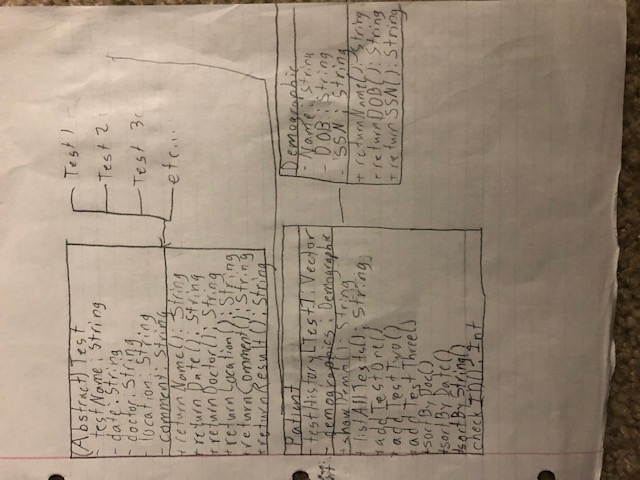 (Abstract) Test
- testName: String
- date: String
- doctor: String
- location: String
- comment: String
+ returnName(): String
+ returnDate(): String
+ returnDoctor(): String
+ returnLocation(): String
+ returnComment(): String
+ returnResult(): String
Test 1
Test 2
Test 3
etc...
Patient
- testHistory[Test]: Vector
- demographics: Demographic
+ showDemo(): String
+ listAllTests(): String
+ addTestOne()
+ addTestTwo()
+ addTestThree()
+ sortByDoc()
+ sortByDate()
+ sortByString()
checkID(): Int
Demographic
- Name: String
- DOB: String
- SSN: String
+ returnName(): String
+ returnDOB(): String
+ returnSSN(): String